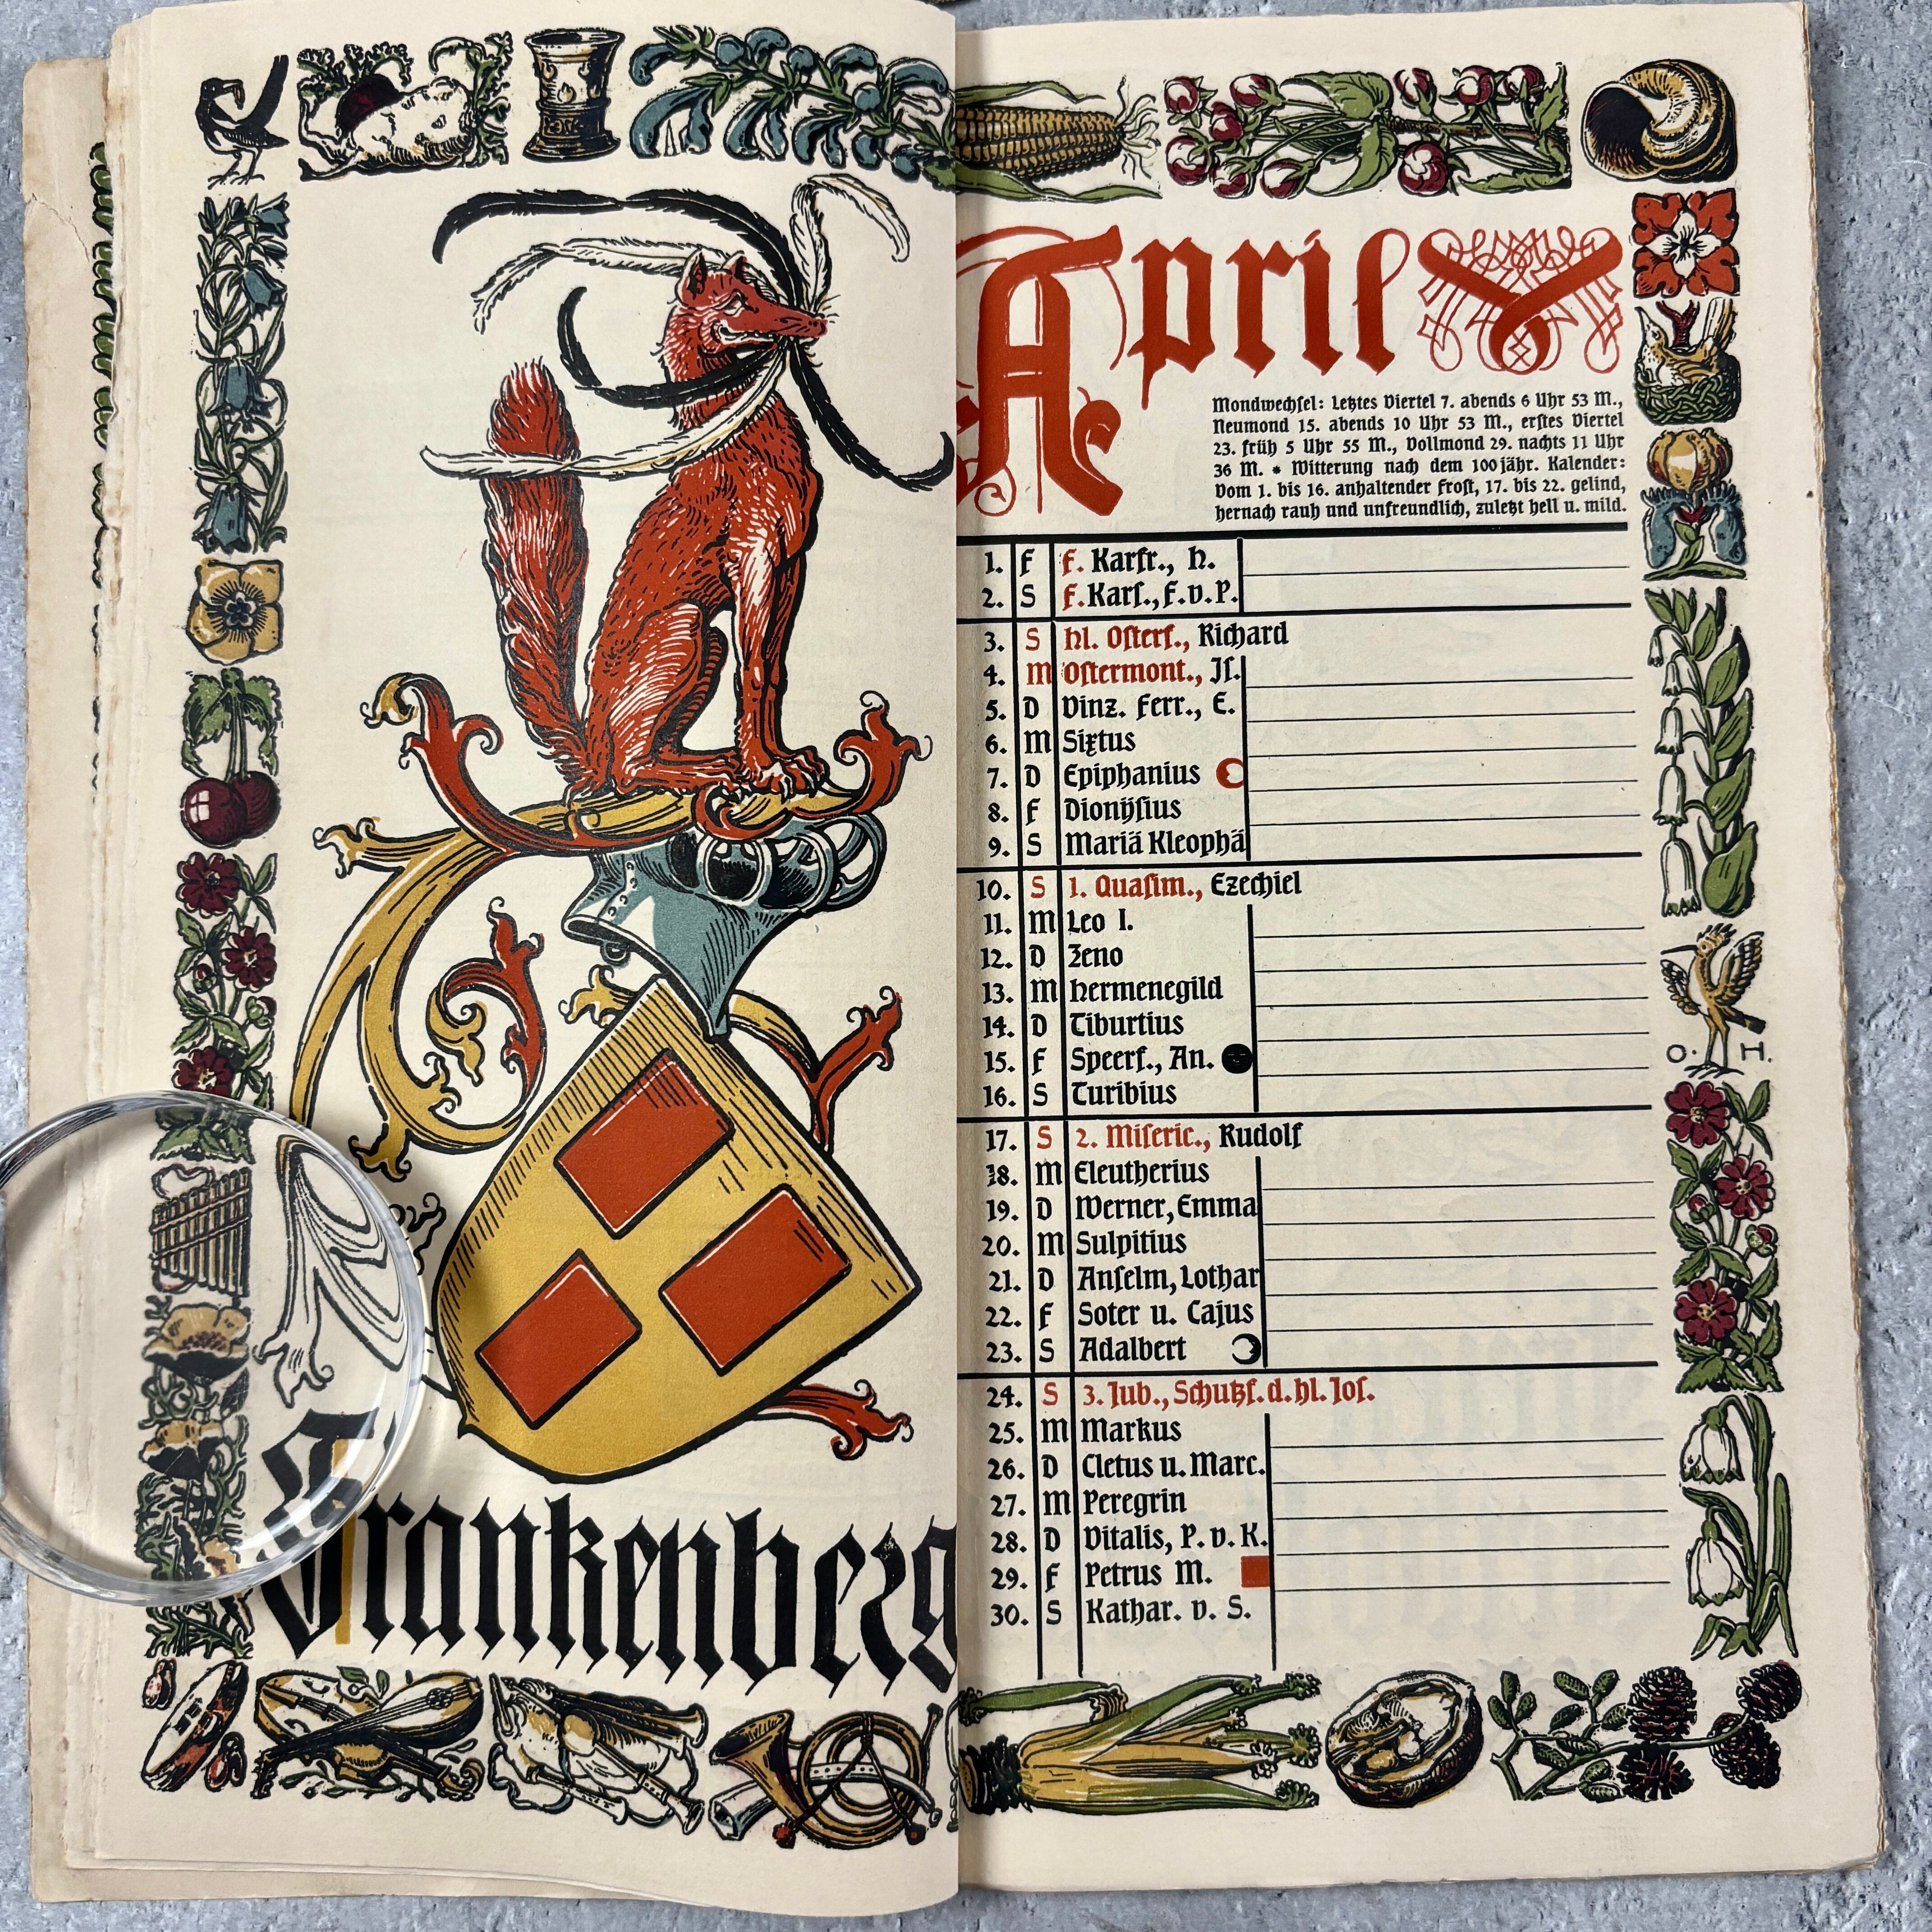 April
Mondwechsel: Letztes Viertel 7. abends 6 Uhr 53 M.,
Neumond 15. abends 10 Uhr 53 M., erstes Viertel
23. früh 5 Uhr 55 M., Vollmond 29. nachts 11 Uhr
36 M. * Witterung nach dem 100jähr. Kalender:
Vom 1. bis 16. anhaltender Frost, 17. bis 22. gelind,
hernach rauh und unfreundlich, zuletzt hell u. mild.
1. F F. Karfr., H.
2. S F. Kars., F. v. P.
3. S Hl. Osterf., Richard
4. M Ostermont., Is.
5. D Vinz. Ferr., E.
6. M Sixtus
7. D Epiphanius
8. F Dionÿsius
9. S Mariä Kleophä
10. S 1. Quasim., Ezechiel
11. M Leo I.
12. D Zeno
13. M Hermenegild
14. D Tiburtius
15. F Speerf., An.
16. S Turibius
17. S 2. Miseric., Rudolf
18. M Eleutherius
19. D Werner, Emma
20. M Sulpitius
21. D Anselm, Lothar
22. F Soter u. Cajus
23. S Adalbert
24. S 3. Jub., Schutzf. d. hl. Jos.
25. M Markus
26. D Cletus u. Marc.
27. M Peregrin
28. D Vitalis, P. v. K.
29. F Petrus M.
30. S Kathar. v. S.
O. H.
Frankenberg